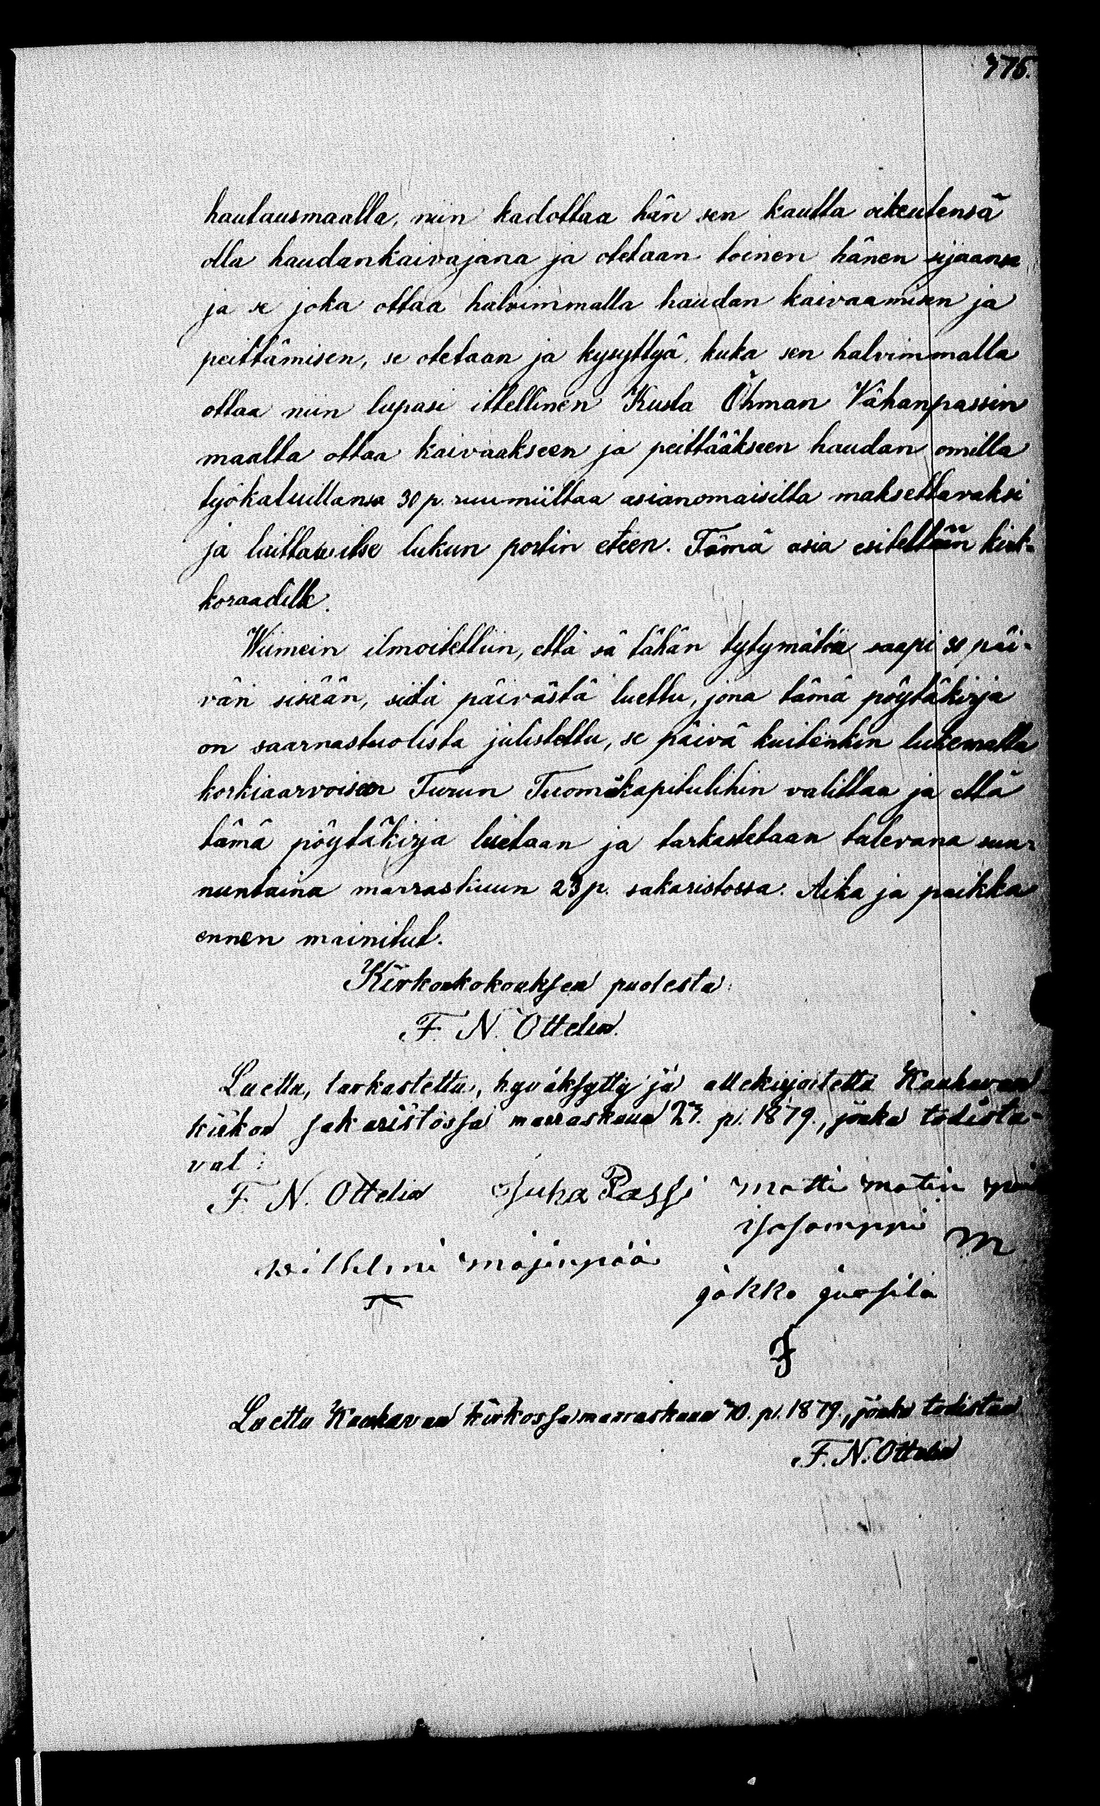 775.
hautausmaalla, niin kadottaa hän sen kautta oikeutensä
olla haudankaivajana ja otetaan toinen hänen sijaansa
ja se joka ottaa halvimmalla haudan kaivaamisen ja
peittämisen, se otetaan ja kysyttyä, kuka sen halvimmalla
ottaa niin lupasi ittellinen Kusta Öhman Vähanpassin
maalta ottaa kaivaakseen ja peittääkseen haudan omilla
työkaluillansa 30 p. ruumiiltaa asianomaisilta maksettavaksi
ja laittaa itse lukun portin eteen. Tämä asia esitettään kirk-
koraadille.
Wiimein ilmoitettiin, että sä tähän tytymätöin saapi 30 päi-
vän sisään, siitä päivästä luettu, jona tämä pöytäkirja
on saarnastuolista julistettu, se päivä kuitenkin lukematta
korkiaarvoisen Turun Tuomiokapitulihin valittaa ja että
tämä pöytäkirja luetaan ja tarkastetaan tulevana sun-
nuntaina marraskuun 23 p. sakaristossa. Aika ja paikka
ennen mainitut.
Kirkonkokouksen puolesta
F. N. Ottelin.
Luettu, tarkastettu, hyväksytty ja allekirjoitettu Kauhavan
kirkon sakaristossa marraskuun 23. p. 1879., jonka todista-
vat:
F N. Ottelin Juha Passi matti matin
isosomppi m
vilhelmi mäjenpää
jakko juosila
Luettu Kauhavan kirkossa marraskuun 30. p. 1879., jonka todistaa
F. N. Ottelin